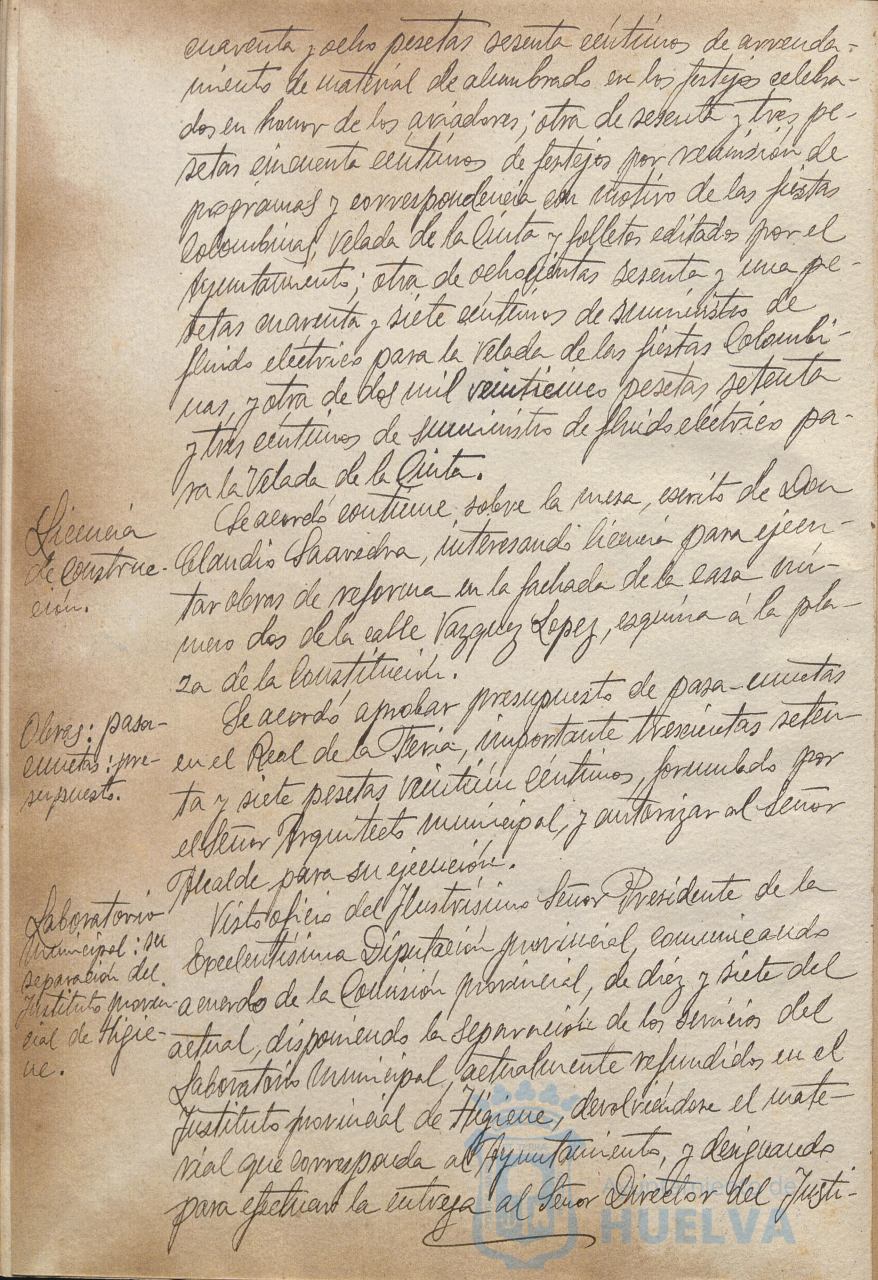 cuarenta y ocho pesetas sesenta céntimos de arrenda-
miento de material de alumbrado en los festejos celebra-
dos en honor de los aviadores; otra de sesenta y tres pe-
setas cincuenta céntimos de festejos por remisión de
programas y correspondencia con motivo de las fiestas
Colombinas, Velada de la Cinta y folletos editados por el
Ayuntamiento; otra de ochocientas sesenta y una pe-
setas cuarenta y siete céntimos de suministro de
fluido eléctrico para la Velada de las fiestas Colombi-
nas, y otra de dos mil veinticinco pesetas setenta
y tres céntimos de suministro de fluido eléctrico pa-
ra la Velada de la Cinta.
Licencia
de construc-
ción.
Se acordó continue sobre la mesa, escrito de Don
Claudio Saavedra, interesando licencia para ejecu-
tar obras de reforma en la fachada de la casa nú-
mero dos de la calle Vazquez Lopez, esquina á la pla-
za de la Constitución.
Obras: pasa-
cunetas: pre-
supuesto.
Se acordó aprobar presupuesto de pasa-cunetas
en el Real de la Feria, importante trescientas seten-
ta y siete pesetas veintiún céntimos, formulado por
el Señor Arquitecto municipal, y autorizar al Señor
Alcalde para su ejecución.
Laboratorio
Municipal: su
separación del
Instituto provin-
cial de Higie-
ne.
Visto oficio del Ilustrísimo Señor Presidente de la
Excelentísima Diputación provincial, comunicando
acuerdo de la Comisión provincial, de diez y siete del
actual, disponiendo la separación de los servicios del
Laboratorio Municipal, actualmente refundidos en el
Instituto provincial de Higiene, devolviéndose el mate-
rial que corresponda al Ayuntamiento, y designando
para efectuar la entrega al Señor Director del Insti-
Ayuntamiento de
HUELVA